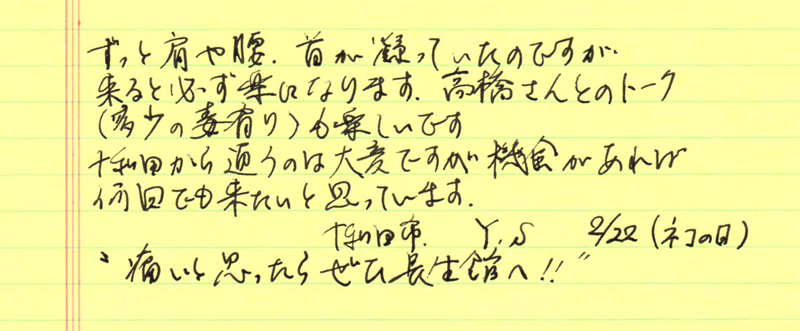 ずっと肩や腰、首が凝っていたのですが
来ると必ず楽になります。高橋さんとのトーク
(多少の毒有り)も楽しいです
十和田から通うのは大変ですが機会があれば
何回でも来たいと思っています。
十和田市. Y.S 2/22(ネコの日)
“痛いと思ったらぜひ長生館へ!!”